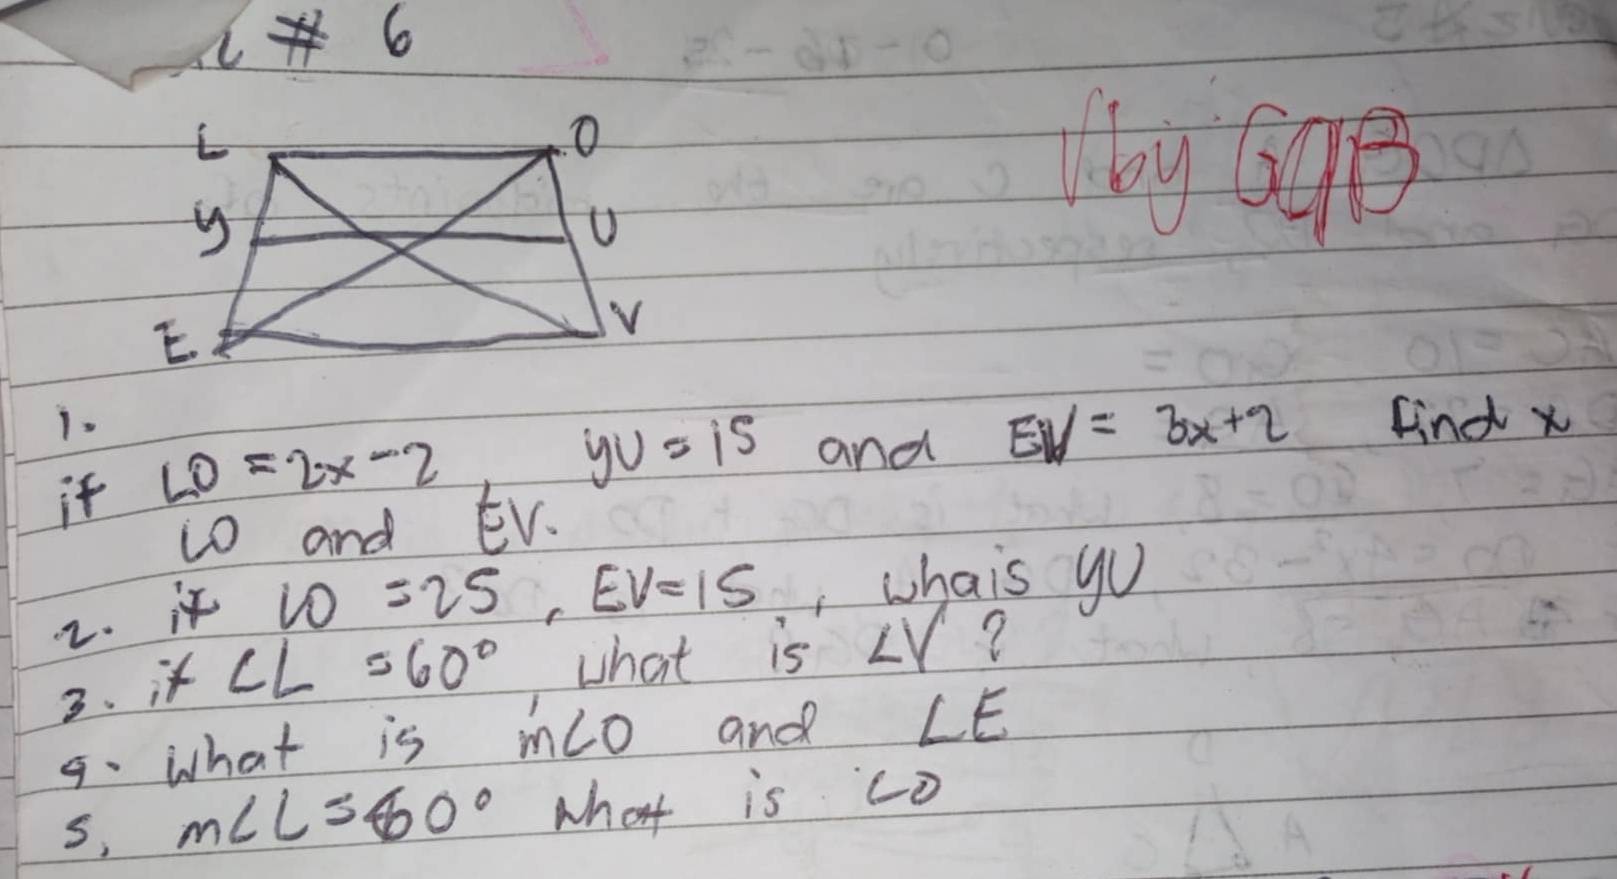 # 6
L O
Y U
E V
√ by GqB
1.
if LO = 2x-2 YU = 15 and EV = 3x+2 find x
LO and EV.
2. if LO = 25, EV=15, whais YU
3. if ∠L = 60°, what is ∠V?
4. What is m∠O and ∠E
5. m∠L = 60° what is ∠O